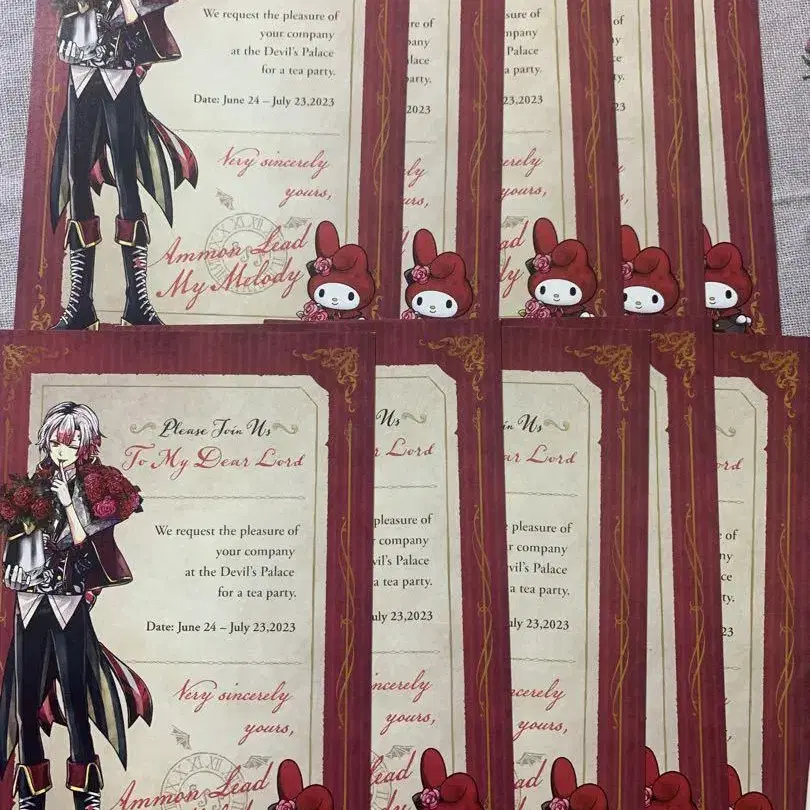 We request the pleasure of
your company
at the Devil's Palace
for a tea party.
Date: June 24 – July 23,2023
Very sincerely
yours,
Ammon Lead
My Melody
re of
pany
lace
arty.
023
ly
yours,
ead
Palace
party.
3,2023
cerely
yours,
ad
dy
Please Join Us
To My Dear Lord
We request the pleasure of
your company
at the Devil's Palace
for a tea party.
Date: June 24 – July 23,2023
Very sincerely
yours,
Ammon Lead
Us
r Lord
pleasure of
company
vil's Palace
a tea party.
uly 23,2023
ncerely
yours,
Lead
in Us
ar Lord
pleasure of
r company
vil's Palace
a tea party.
July 23,2023
sincerely
yours,
Lead
rd
of
ny
ce
ty.
23